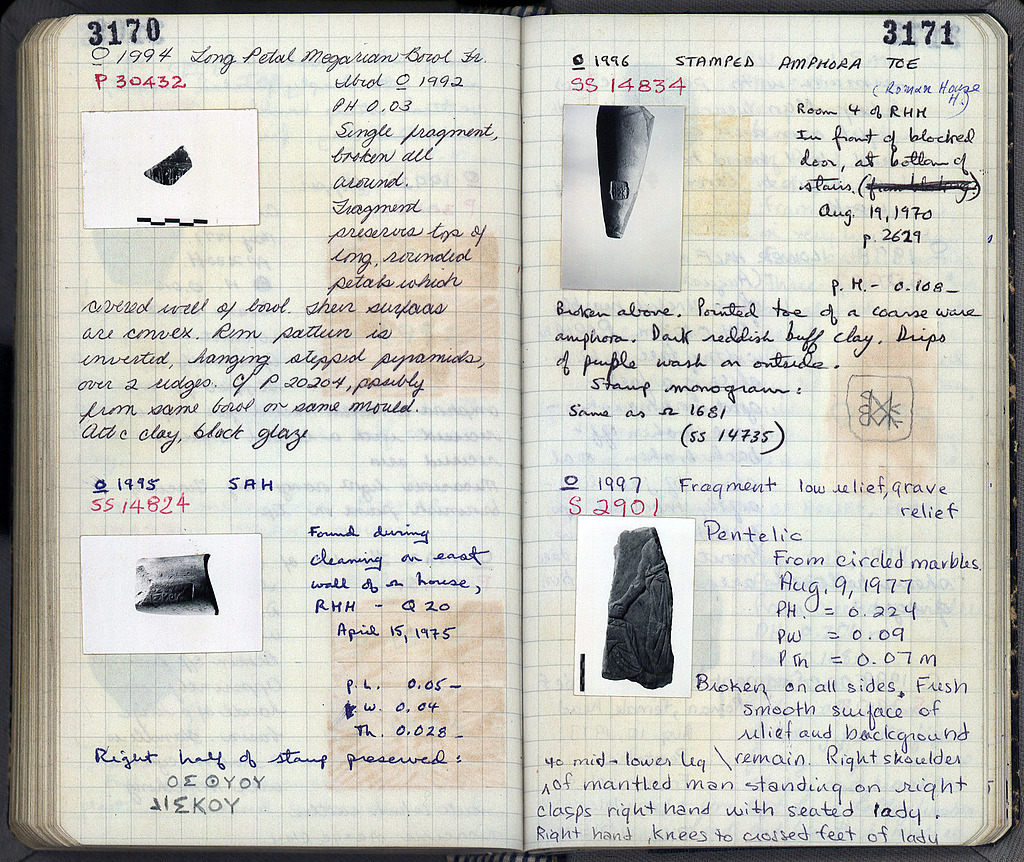 3170
O 1994 Long Petal Megarian Bowl Fr.
P 30432
Ibid O 1992
PH 0.03
Single fragment,
broken all
around.
Fragment
preserves top of
long, rounded
petals which
covered wall of bowl. Their surfaces
are convex. Rim pattern is
inverted, hanging stepped pyramids,
over 2 ridges. Cf P 20204, possibly
from same bowl or same mould.
Attic clay, black glaze
O 1995 SAH
SS 14824
Found during
cleaning on east
wall of Ω house,
RHH - Q 20
April 15, 1975
p.L. 0.05-
p.W. 0.04
Th. 0.028-
Right half of stamp preserved:
ΟΣΘΥΟΥ
ΙΣΚΟΥ
3171
O 1996 STAMPED AMPHORA TOE
SS 14834
(Roman House
H.)
Room 4 of RHH
In front of blocked
door, at bottom of
stairs.
Aug. 19, 1970
p. 2629
p. H. - 0.108-
Broken above. Pointed toe of a coarse ware
amphora. Dark reddish buff clay. Drips
of purple wash on outside.
Stamp monogram:
Same as Ω 1681
(SS 14735)
O 1997 Fragment low relief, grave
relief
S 2901
Pentelic
From circled marbles.
Aug. 9, 1977
PH. = 0.224
PW = 0.09
PTh = 0.07 m
Broken on all sides. Fresh
smooth surface of
relief and background
to mid-lower leg \ remain. Right shoulder
of mantled man standing on right
clasps right hand with seated lady.
Right hand, knees to crossed feet of lady